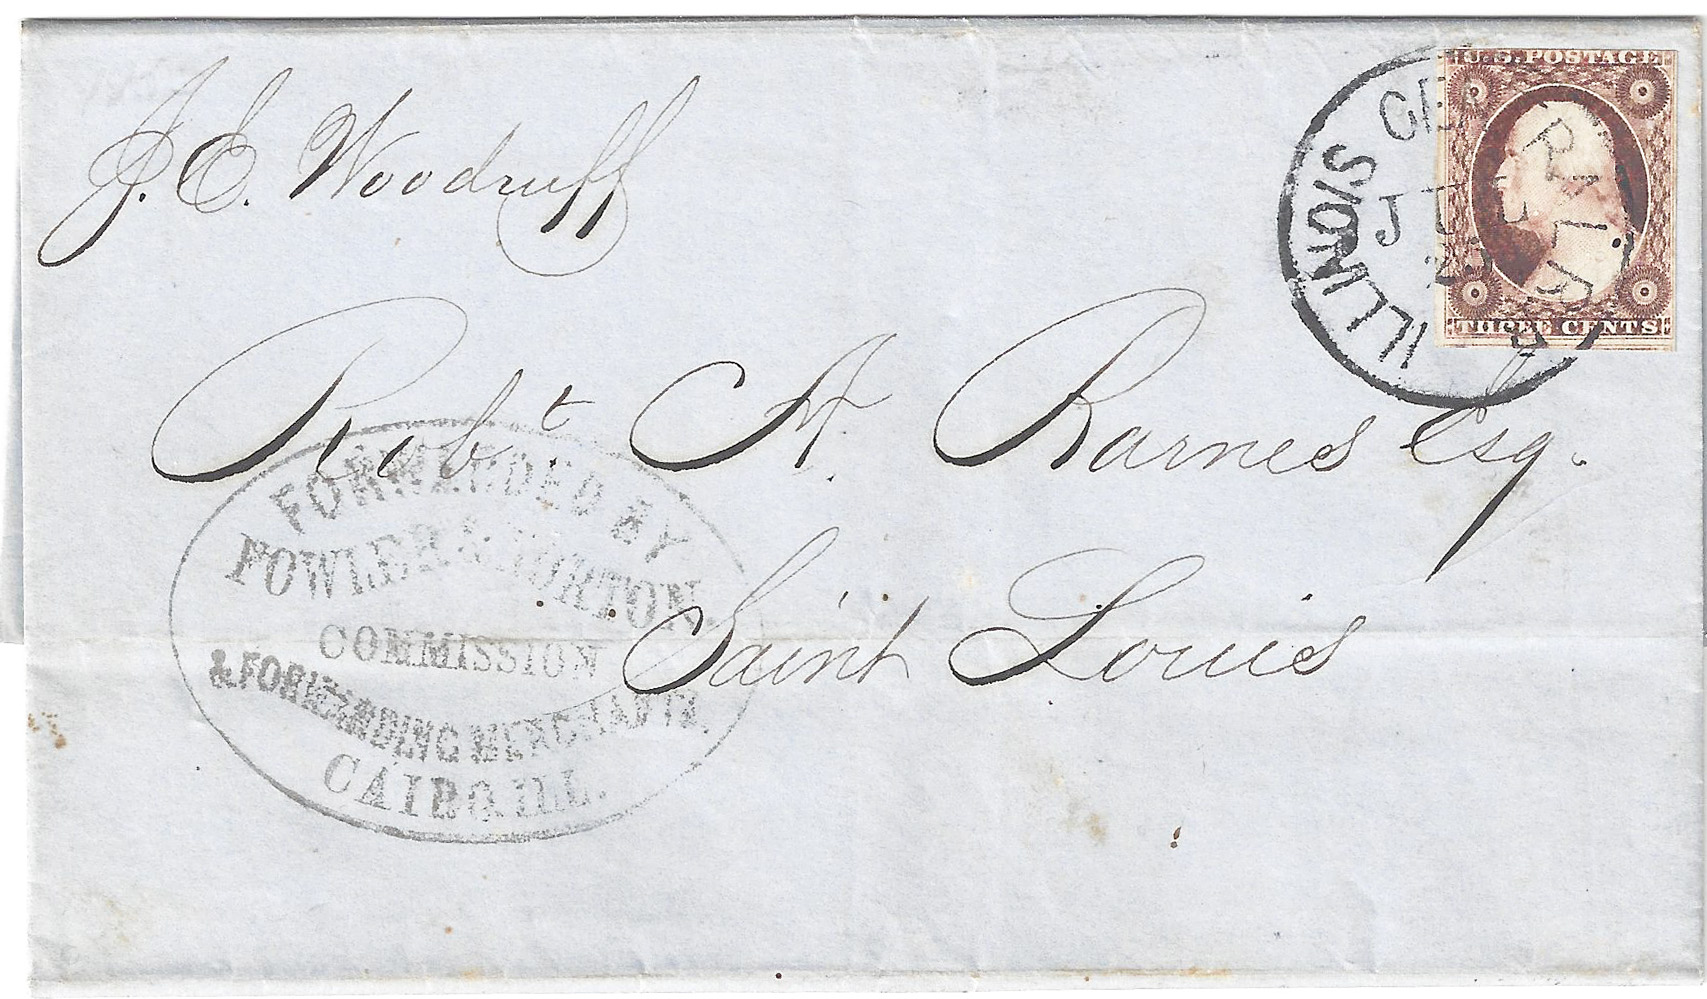 J. E. Woodruff
U.S. POSTAGE
THREE CENTS
ILLINOIS CE
Robt A. Barnes Esq.
Saint Louis
FORWARDED BY
FOWLER & NORTON
COMMISSION
& FORWARDING MERCHANTS,
CAIRO, ILL.